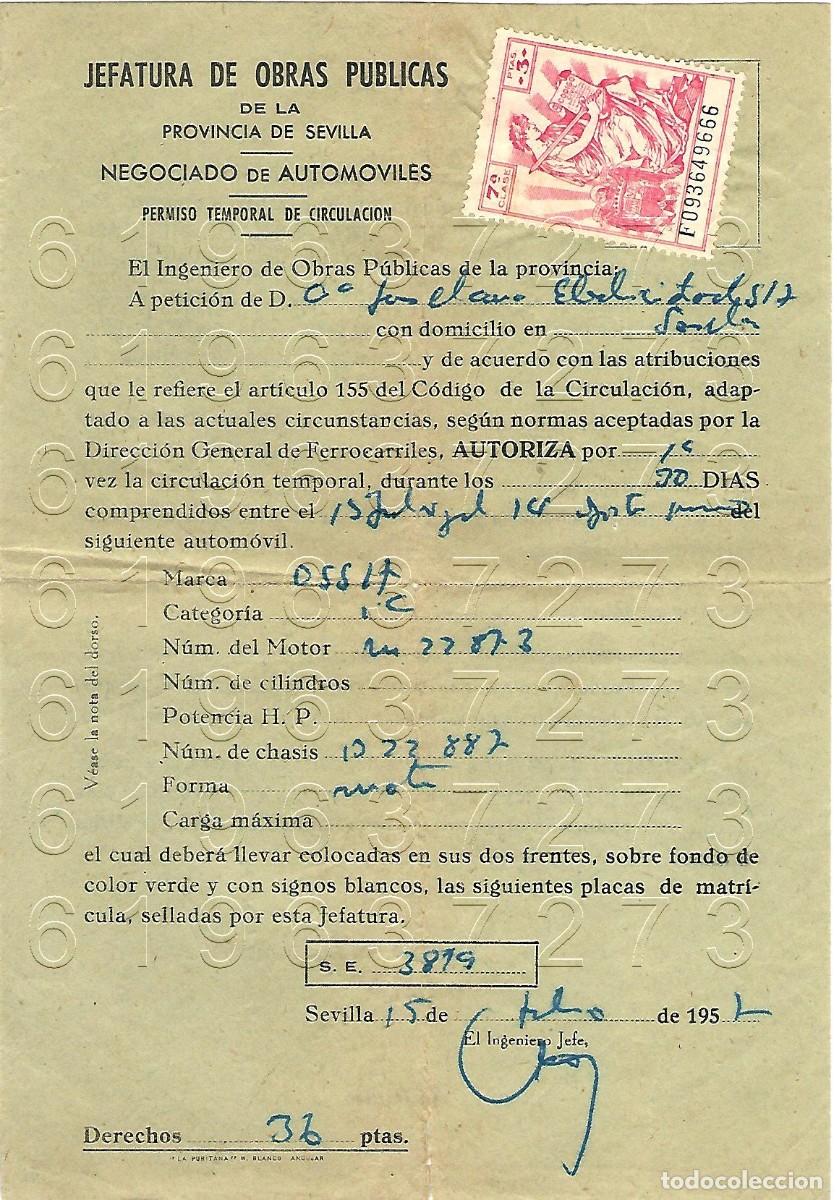 JEFATURA DE OBRAS PUBLICAS
DE LA
PROVINCIA DE SEVILLA
NEGOCIADO DE AUTOMOVILES
PERMISO TEMPORAL DE CIRCULACION
PTAS 3
7ª CLASE
F093649666
El Ingeniero de Obras Públicas de la provincia:
A petición de D.
con domicilio en Sevilla
y de acuerdo con las atribuciones
que le refiere el artículo 155 del Código de la Circulación, adap-
tado a las actuales circunstancias, según normas aceptadas por la
Dirección General de Ferrocarriles, AUTORIZA por 1ª
vez la circulación temporal, durante los 30 DIAS
comprendidos entre el 15 Julio al 14 del
siguiente automóvil.
Marca OSSA
Categoría 1ª C
Núm. del Motor 22873
Núm. de cilindros
Potencia H. P.
Núm. de chasis
Forma moto
Carga máxima
Véase la nota del dorso.
el cual deberá llevar colocadas en sus dos frentes, sobre fondo de
color verde y con signos blancos, las siguientes placas de matrí-
cula, selladas por esta Jefatura.
S. E. 3819
Sevilla 15 de Julio de 195
El Ingeniero Jefe,
Derechos 36 ptas.
"LA PURITANA" R. BLANCO ANDUJAR
619637273
619637273
619637273
619637273
619637273
619637273
619637273
619637273
619637273
todocoleccion